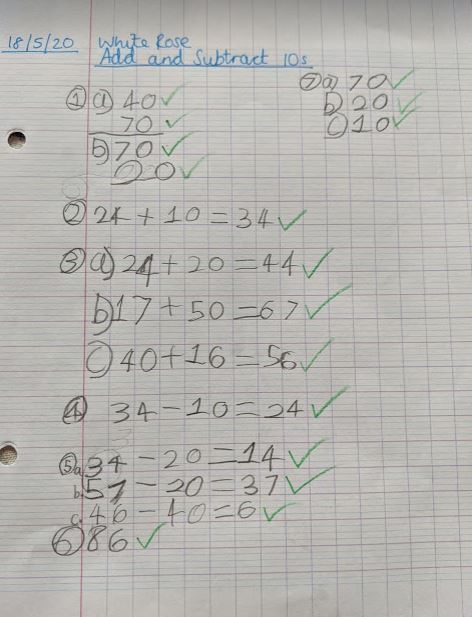 18/5/20 White Rose
Add and Subtract 10s
① a) 40 ✓
70 ✓
b) 70 ✓
20 ✓
② 24 + 10 = 34 ✓
③ a) 24 + 20 = 44 ✓
b) 17 + 50 = 67 ✓
c) 40 + 16 = 56 ✓
④ 34 - 10 = 24 ✓
⑤ a 34 - 20 = 14 ✓
b. 57 - 20 = 37 ✓
c. 46 - 40 = 6 ✓
⑥ 86 ✓
⑦ a) 70 ✓
b) 20 ✓
c) 10 ✓